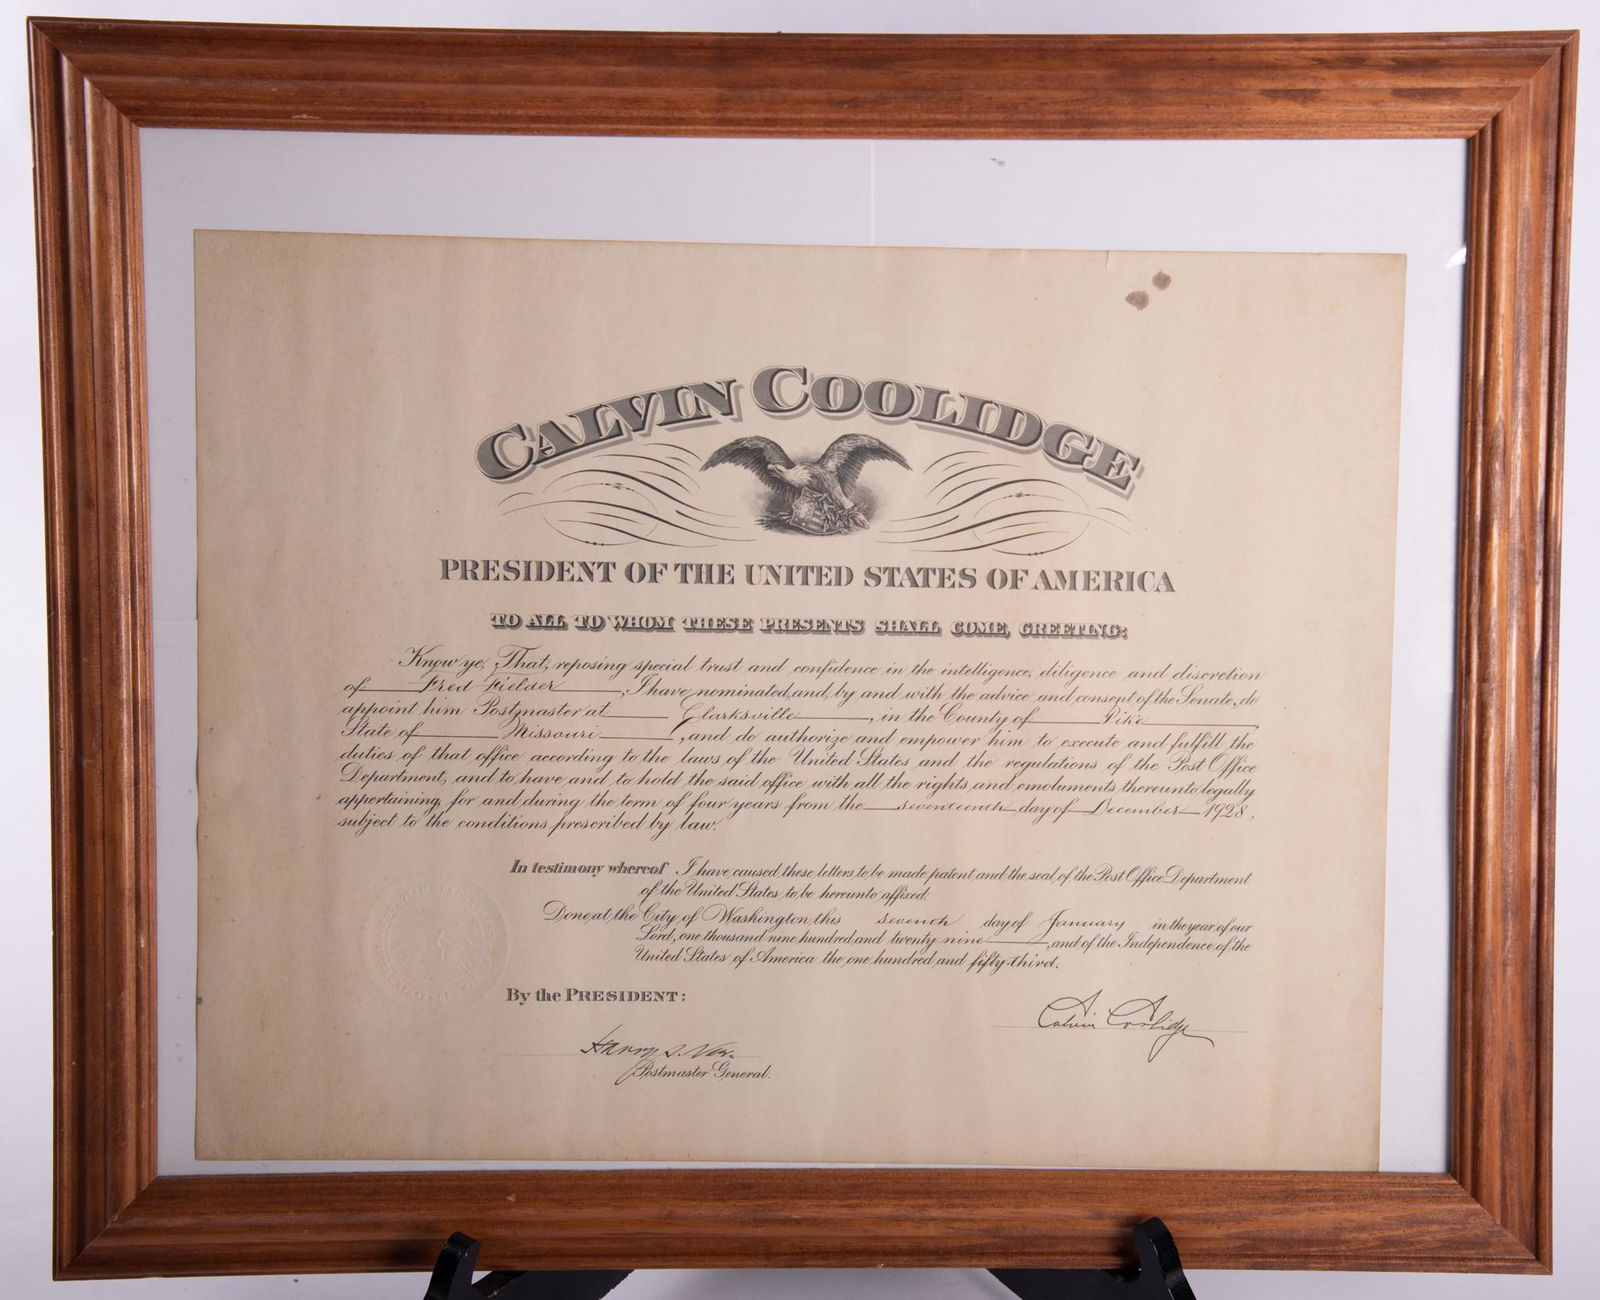 CALVIN COOLIDGE
PRESIDENT OF THE UNITED STATES OF AMERICA
TO ALL TO WHOM THESE PRESENTS SHALL COME, GREETING:
Know ye, That, reposing special trust and confidence in the intelligence, diligence and discretion
of Fred Fielder, I have nominated, and, by and with the advice and consent of the Senate, do
appoint him Postmaster at Clarksville, in the County of Pike
State of Missouri, and do authorize and empower him to execute and fulfill the
duties of that office according to the laws of the United States and the regulations of the Post Office
Department, and to have and to hold the said office, with all the rights and emoluments thereunto legally
appertaining, for and during the term of four years from the seventeenth day of December 1928,
subject to the conditions prescribed by law.
In testimony whereof I have caused these letters to be made patent, and the seal of the Post Office Department
of the United States to be hereunto affixed.
Done at the City of Washington this seventh day of January in the year of our
Lord, one thousand nine hundred and twenty nine, and of the Independence of the
United States of America the one hundred and fifty-third.
By the PRESIDENT:
Calvin Coolidge
Harry S. New.
Postmaster General.